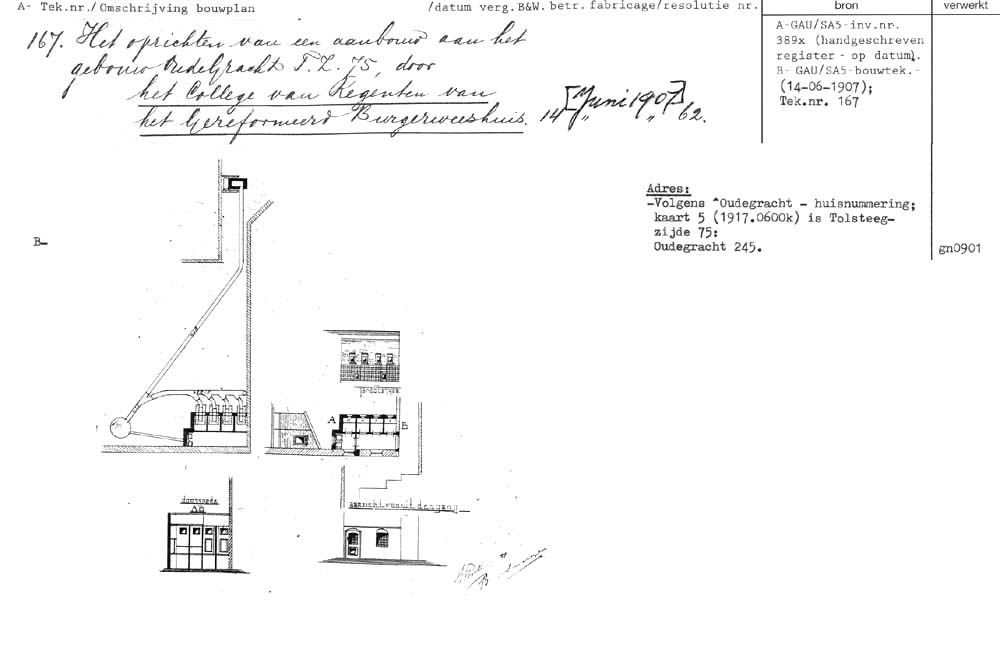 A- Tek.nr./Omschrijving bouwplan /datum verg.B&W. betr. fabricage/resolutie nr. bron verwerkt
167. Het oprichten van een aanbouw aan het
gebouw Oudegracht T.Z. 75, door
het College van Regenten van
het Gereformeerd Burgerweeshuis. 14 [Juni 1907] 62.
A-GAU/SA5-inv.nr.
389x (handgeschreven
register - op datum).
B- GAU/SA5-bouwtek.-
(14-06-1907);
Tek.nr. 167
Adres:
-Volgens ^Oudegracht - huisnummering;
kaart 5 (1917.0600k) is Tolsteeg-
zijde 75:
Oudegracht 245.
gn0901
B-
A
B
doorsnede
aanzicht vanuit den gang